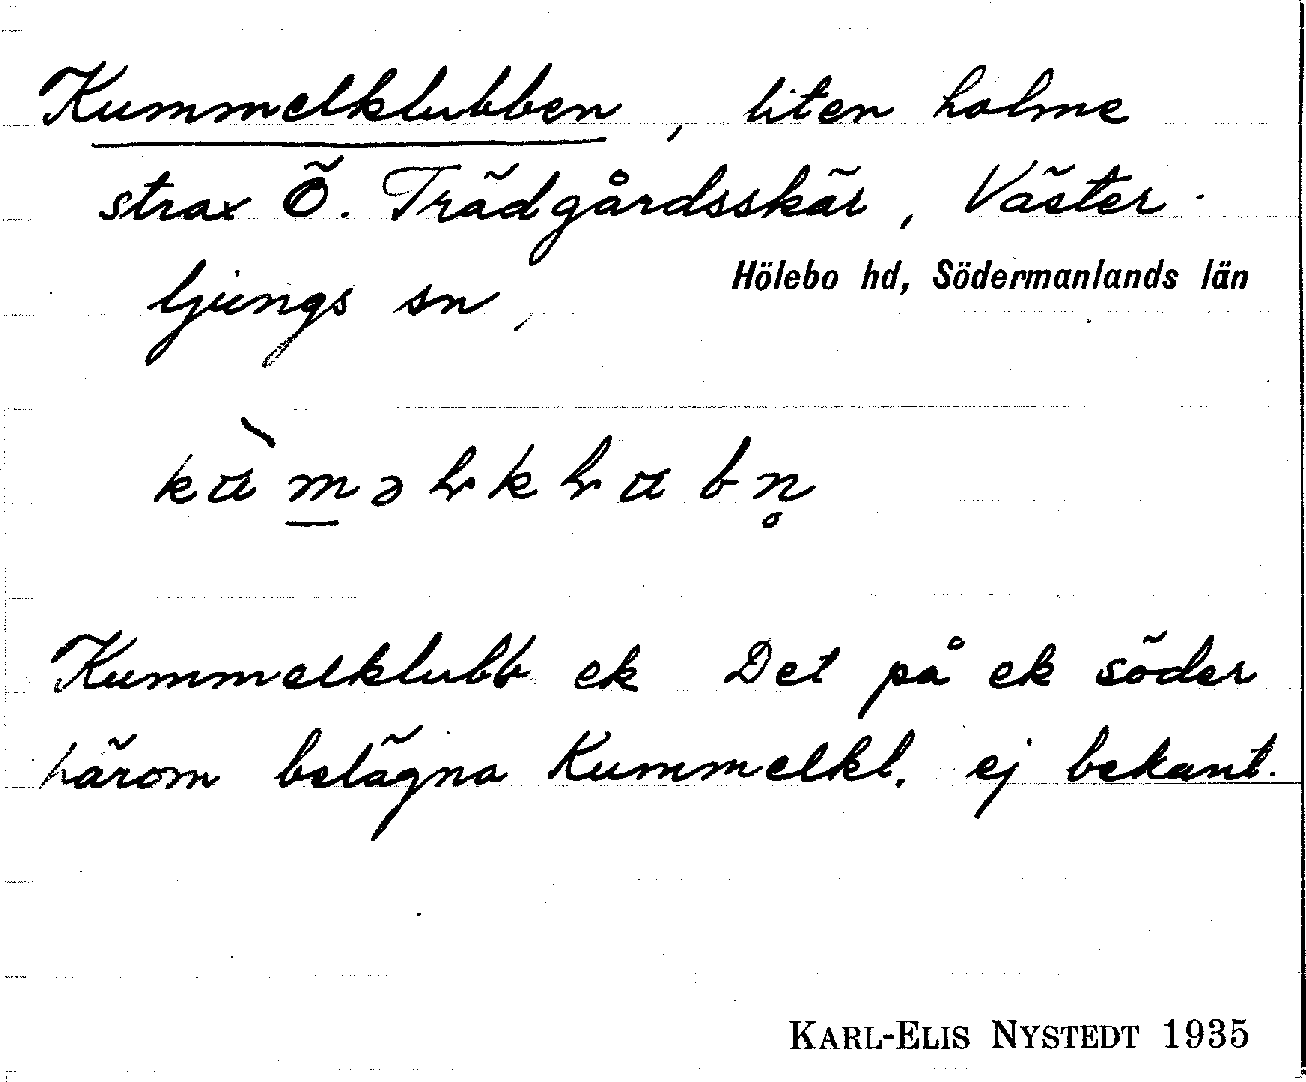 Kummelklubben, liten holme
strax Ö. Trädgårdsskär, Väster-
ljungs sn,
Hölebo hd, Södermanlands län
Kummelklubb ek Det på ek söder
härom belägna Kummelkl. ej bekant.
KARL-ELIS NYSTEDT 1935